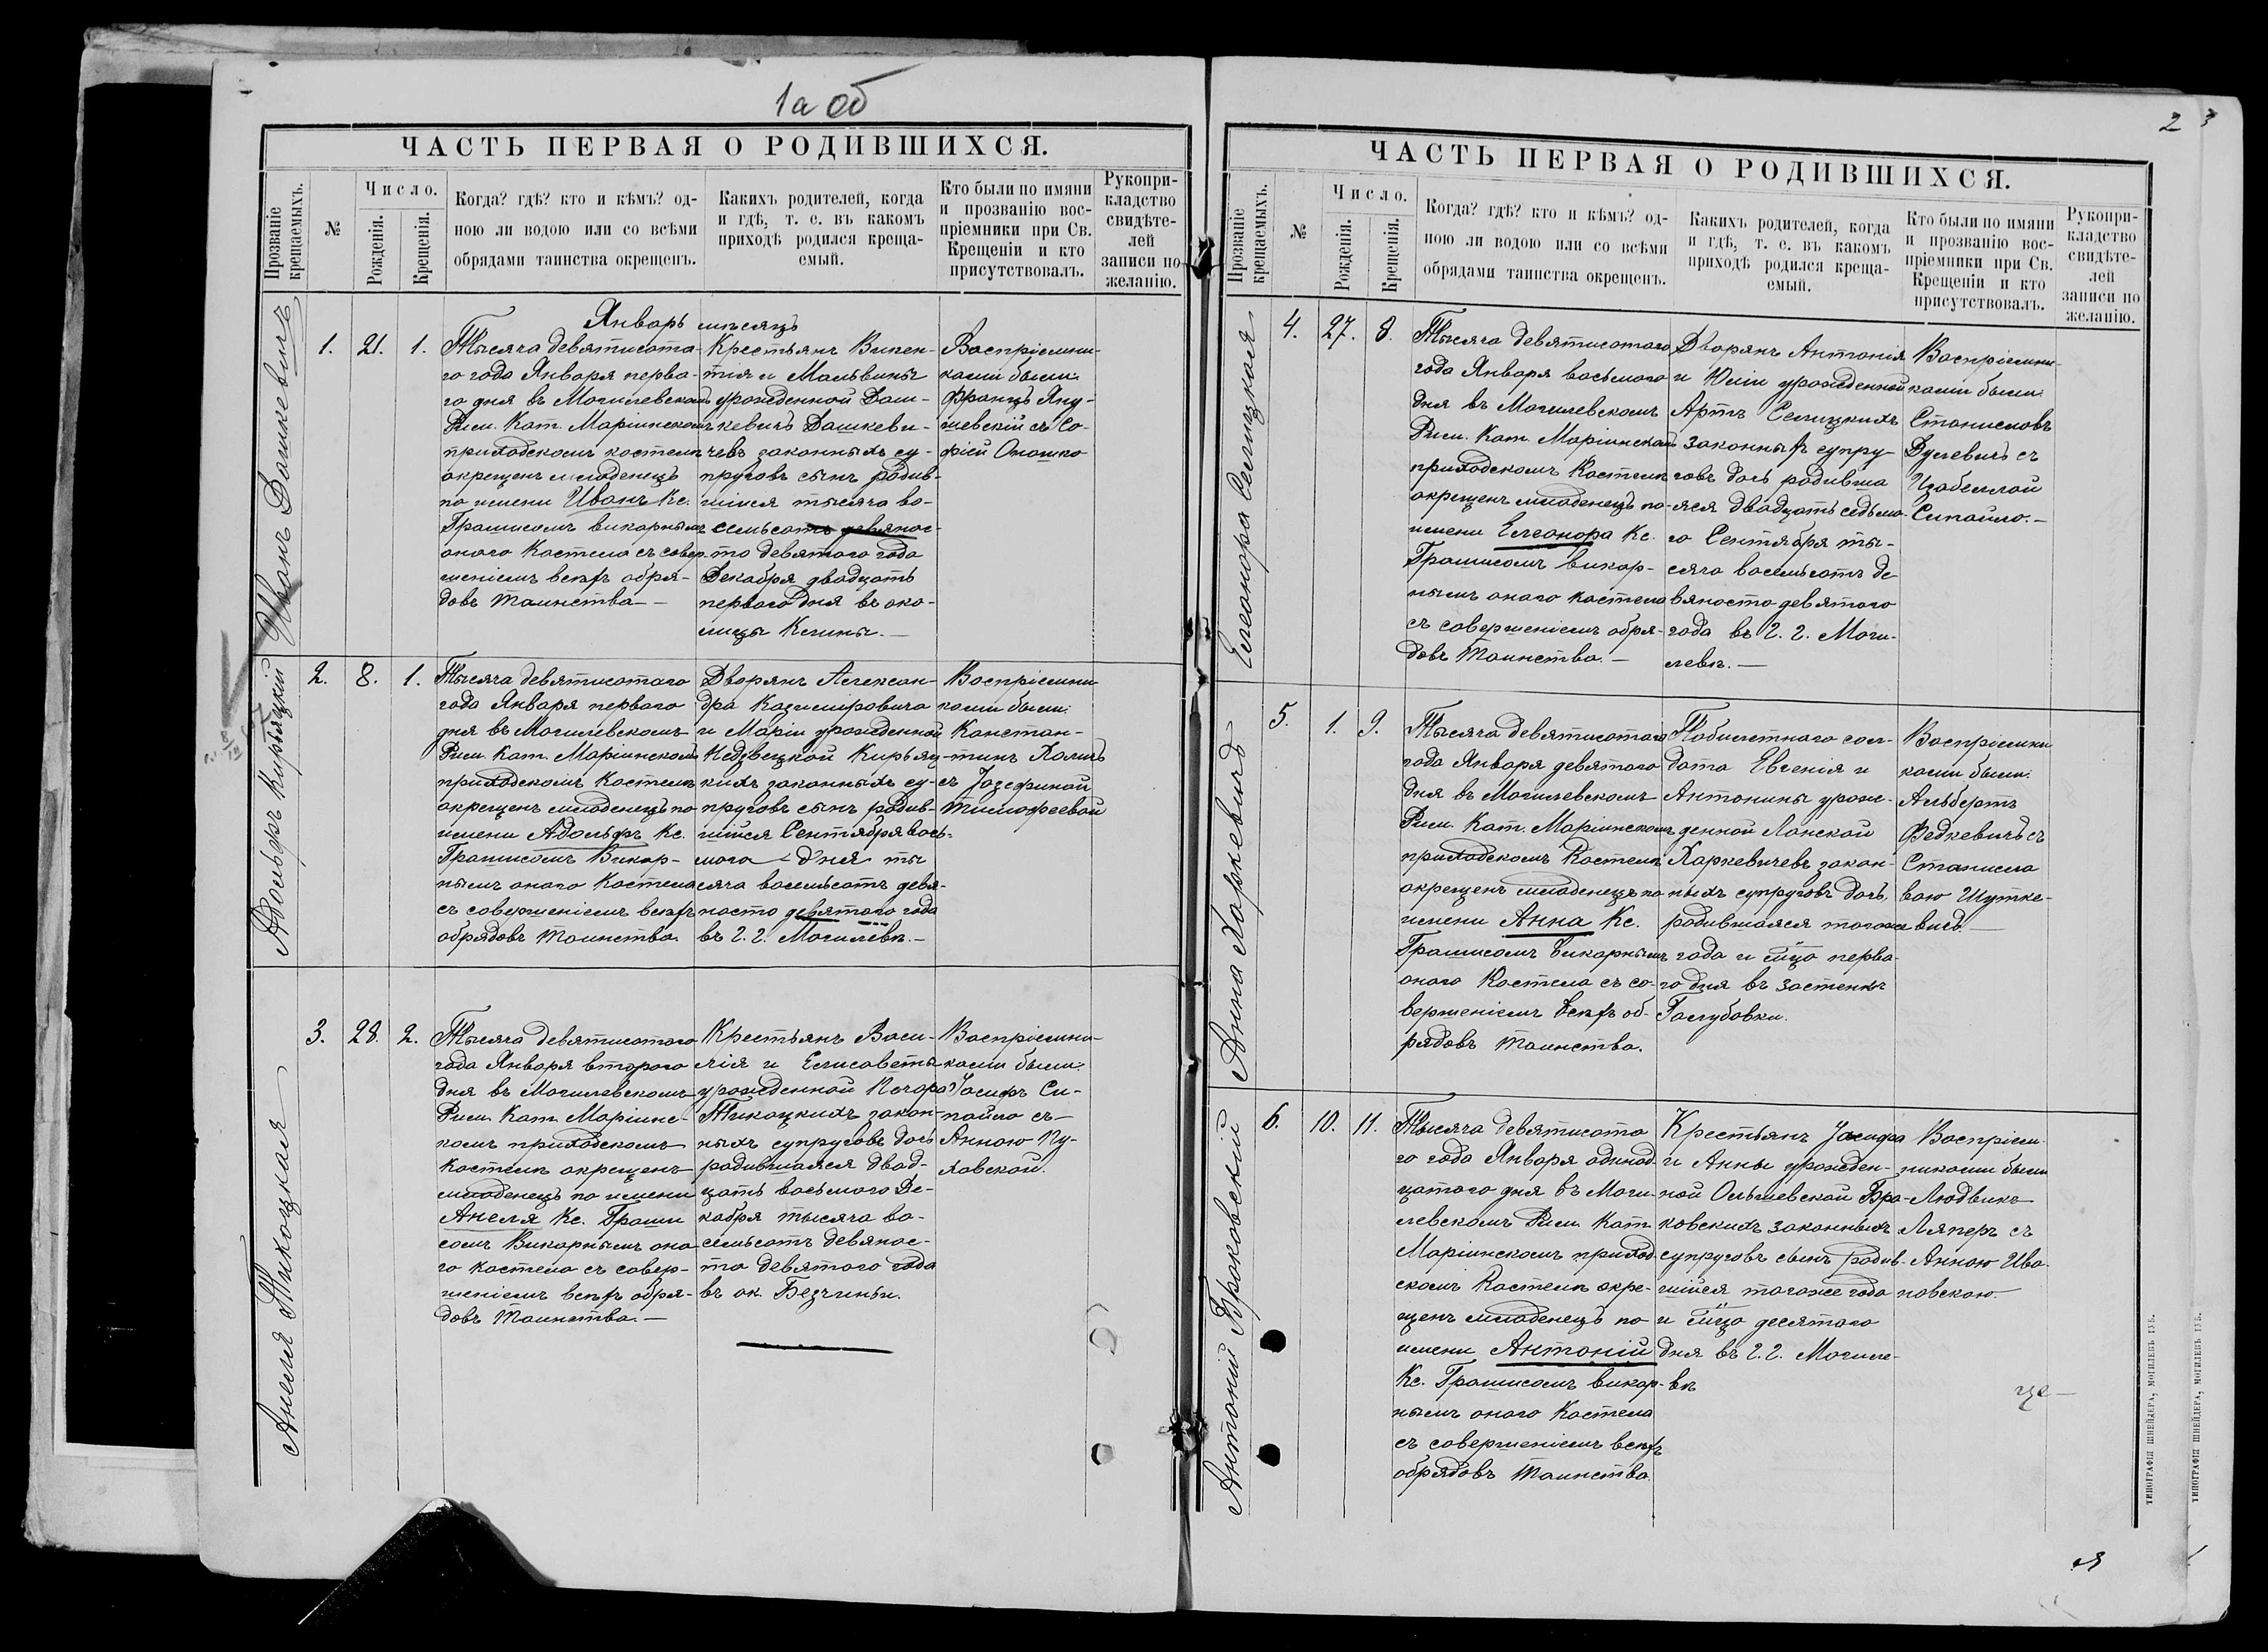 1а об
ЧАСТЬ ПЕРВАЯ О РОДИВШИХСЯ.
Прозваніе крещаемыхъ.
№
Число.
Рожденія.
Крещенія.
Когда? гдѣ? кто и кѣмъ? од-
ною ли водою или со всѣми
обрядами таинства окрещенъ.
Какихъ родителей, когда
и гдѣ, т. е. въ какомъ
приходѣ родился креща-
емый.
Кто были по имяни
и прозванію вос-
пріемники при Св.
Крещеніи и кто
присутствовалъ.
Рукопри-
кладство
свидѣте-
лей
записи по
желанію.
Январь мѣсяцъ
Иванъ Дашкевичъ
1. 21. 1.
Тысяча девятисота-
го года Января перва-
го дня въ Могилевскомъ
Рим. Кат. Маріинскомъ
приходскомъ костелѣ
окрещенъ младенецъ
по имени Иванъ Кс.
Грашисомъ викарнымъ
оного Костела съ совер-
шеніемъ всѣхъ обря-
довъ таинства —
Крестьянъ Викен-
тія и Мальвины
урожденной Даш-
кевичъ Дашкеви-
чевъ законныхъ су-
пруговъ сынъ родив-
шійся тысяча во-
семьсотъ девянос-
то девятого года
Декабря двадцать
первого дня въ око-
лицы Клины. —
Воспріемни-
ками были:
Францъ Яну-
шевскій съ Со-
фіей Оношко
Адольфъ Кирьяцкій
2. 8. 1.
Тысяча девятисотаго
года Января первого
дня въ Могилевскомъ
Рим. Кат. Маріинскомъ
приходскомъ Костелѣ
окрещенъ младенецъ по
имени Адольфъ Кс.
Грашисомъ Викар-
нымъ оного Костела
съ совершеніемъ всѣхъ
обрядовъ таинства.
Дворянъ Алексан-
дра Казимировича
и Маріи урожденной
Недзвецкой Кирьяц-
кихъ законныхъ су-
пруговъ сынъ родив-
шійся Сентября вось-
мого дня ты
сяча восемьсотъ девя-
носто девятого года
въ г. г. Могилевѣ. —
Воспріемни-
ками были:
Констан-
тинъ Холичъ
съ Іозефиной
Тимофеевой
Анеля Тикоцкая
3. 28. 2.
Тысяча девятисотого
года Января второго
дня въ Могилевскомъ
Рим. Кат. Маріинс-
комъ приходскомъ
Костелѣ окрещенъ
младенецъ по имени
Анеля Кс. Граши
сомъ Викарнымъ оно
го костела съ совер-
шеніемъ всѣхъ обря-
довъ таинства. —
Крестьянъ Васи-
лія и Елисаветы
урожденной Печоро
Тикоцкихъ закон-
ныхъ супруговъ дочь
родившаяся двад-
цать восьмого Де-
кабря тысяча во-
семьсотъ девянос-
то девятого года
въ ок. Безчины.
Воспріемни-
ками были:
Іосифъ Си-
пайло съ
Анною Пу-
ховской.
2 3
ЧАСТЬ ПЕРВАЯ О РОДИВШИХСЯ.
Прозваніе крещаемыхъ.
№
Число.
Рожденія.
Крещенія.
Когда? гдѣ? кто и кѣмъ? од-
ною ли водою или со всѣми
обрядами таинства окрещенъ.
Какихъ родителей, когда
и гдѣ, т. е. въ какомъ
приходѣ родился креща-
емый.
Кто были по имяни
и прозванію вос-
пріемники при Св.
Крещеніи и кто
присутствовалъ.
Рукопри-
кладство
свидѣте-
лей
записи по
желанію.
Елеонора Селицкая
4. 27. 8.
Тысяча девятисотаго
года Января восьмого
дня въ Могилевскомъ
Рим. Кат. Маріинскомъ
приходскомъ Костелѣ
окрещенъ младенецъ по-
имени Елеонора Кс.
Грашисомъ викар-
нымъ оного костела
съ совершеніемъ обря-
довъ таинства. —
Дворянъ Антонія
и Юліи урожденной
Артъ Селицкихъ
законныхъ супру-
говъ дочь родивша
яся двадцать седьмо-
го Сентября ты-
сяча восемьсотъ де
вяносто девятого
года въ г. г. Моги-
левѣ. —
Воспріемни-
ками были:
Станиславъ
Дулевичъ съ
Изабеллой
Сипайло. —
Анна Харкевичъ
5. 1. 9.
Тысяча девятисотаго
года Января девятого
дня въ Могилевскомъ
Рим. Кат. Маріинскомъ
приходскомъ Костелѣ
окрещенъ младенецъ по
имени Анна Кс.
Грашисомъ викарнымъ
оного Костела съ со-
вершеніемъ всѣхъ об-
рядовъ таинства.
Побилетного сол-
дата Евгенія и
Антонины урож-
денной Ланской
Харкевичевъ закон-
ныхъ супруговъ дочь
родившаяся тогоже
года и мца перва
го дня въ застенкѣ
Голубовки.
Воспріемни
ками были:
Альбертъ
Федкевичъ съ
Станисла
вою Шутке-
вичъ. —
Антоній Браковскій
6. 10. 11.
Тысяча девятисота
го года Января одинад-
цатого дня въ Моги-
левскомъ Рим. Кат.
Маріинскомъ приход-
скомъ Костелѣ окре-
щенъ младенецъ по
имени Антоній
Кс. Грашисомъ викар-
нымъ оного Костела
съ совершеніемъ всѣхъ
обрядовъ таинства.
Крестьянъ Іосифа
и Анны урожден-
ной Ольшевской Бра-
ковскихъ законныхъ
супруговъ сынъ родив-
шійся тогоже года
и мца десятого
дня въ г. г. Могиле-
вѣ
Воспріем-
никами были
Людвикъ
Ляперъ съ
Анною Ива-
новскою.
ТИПОГРАФІЯ ШНЕЙДЕРА, МОГИЛЕВЪ ГУБ.
ТИПОГРАФІЯ ШНЕЙДЕРА, МОГИЛЕВЪ ГУБ.